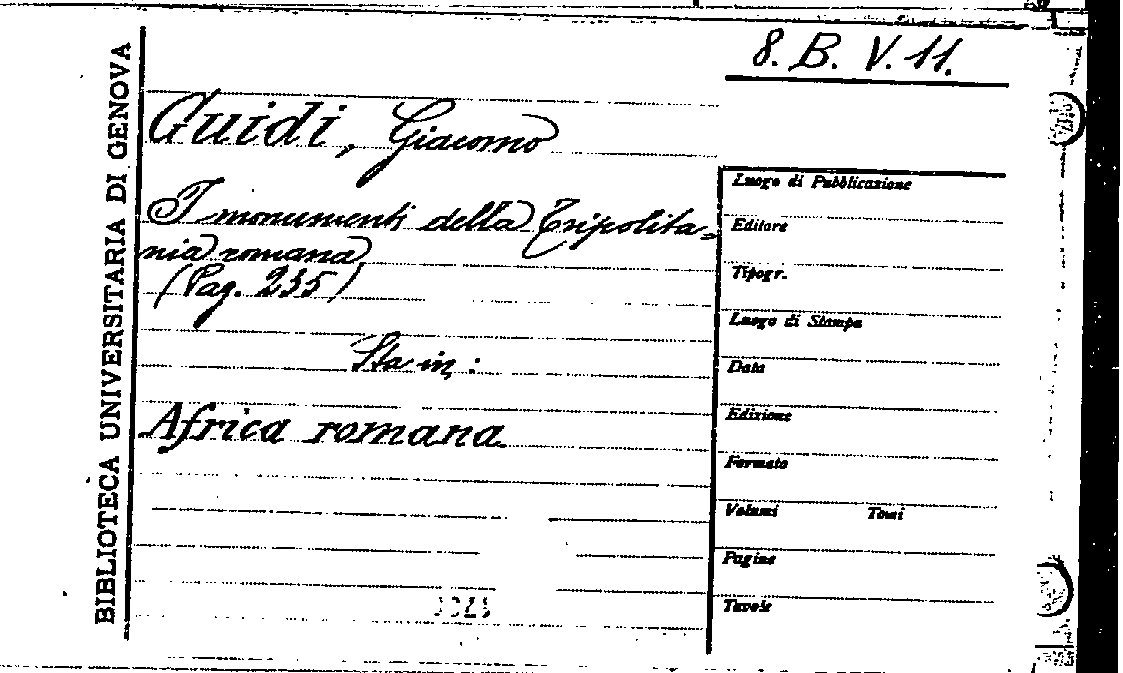 8. B. V. 11.
BIBLIOTECA UNIVERSITARIA DI GENOVA
Guidi, Giacomo
I monumenti della Tripolita-
nia romana
(Pag. 235)
Sta in:
Africa romana
Luogo di Pubblicazione
Editore
Tipogr.
Luogo di Stampa
Data
Edizione
Formato
Volumi Tomi
Pagine
Tavole